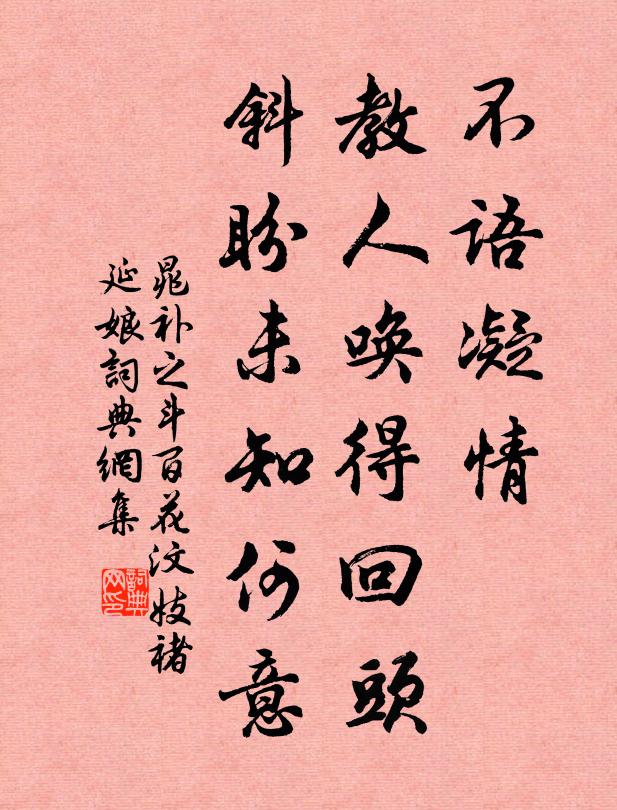 不语凝情
教人唤得回頭
斜盼未知何意
晁补之斗百花汶妓褚
延娘詞典網集
詞典网印